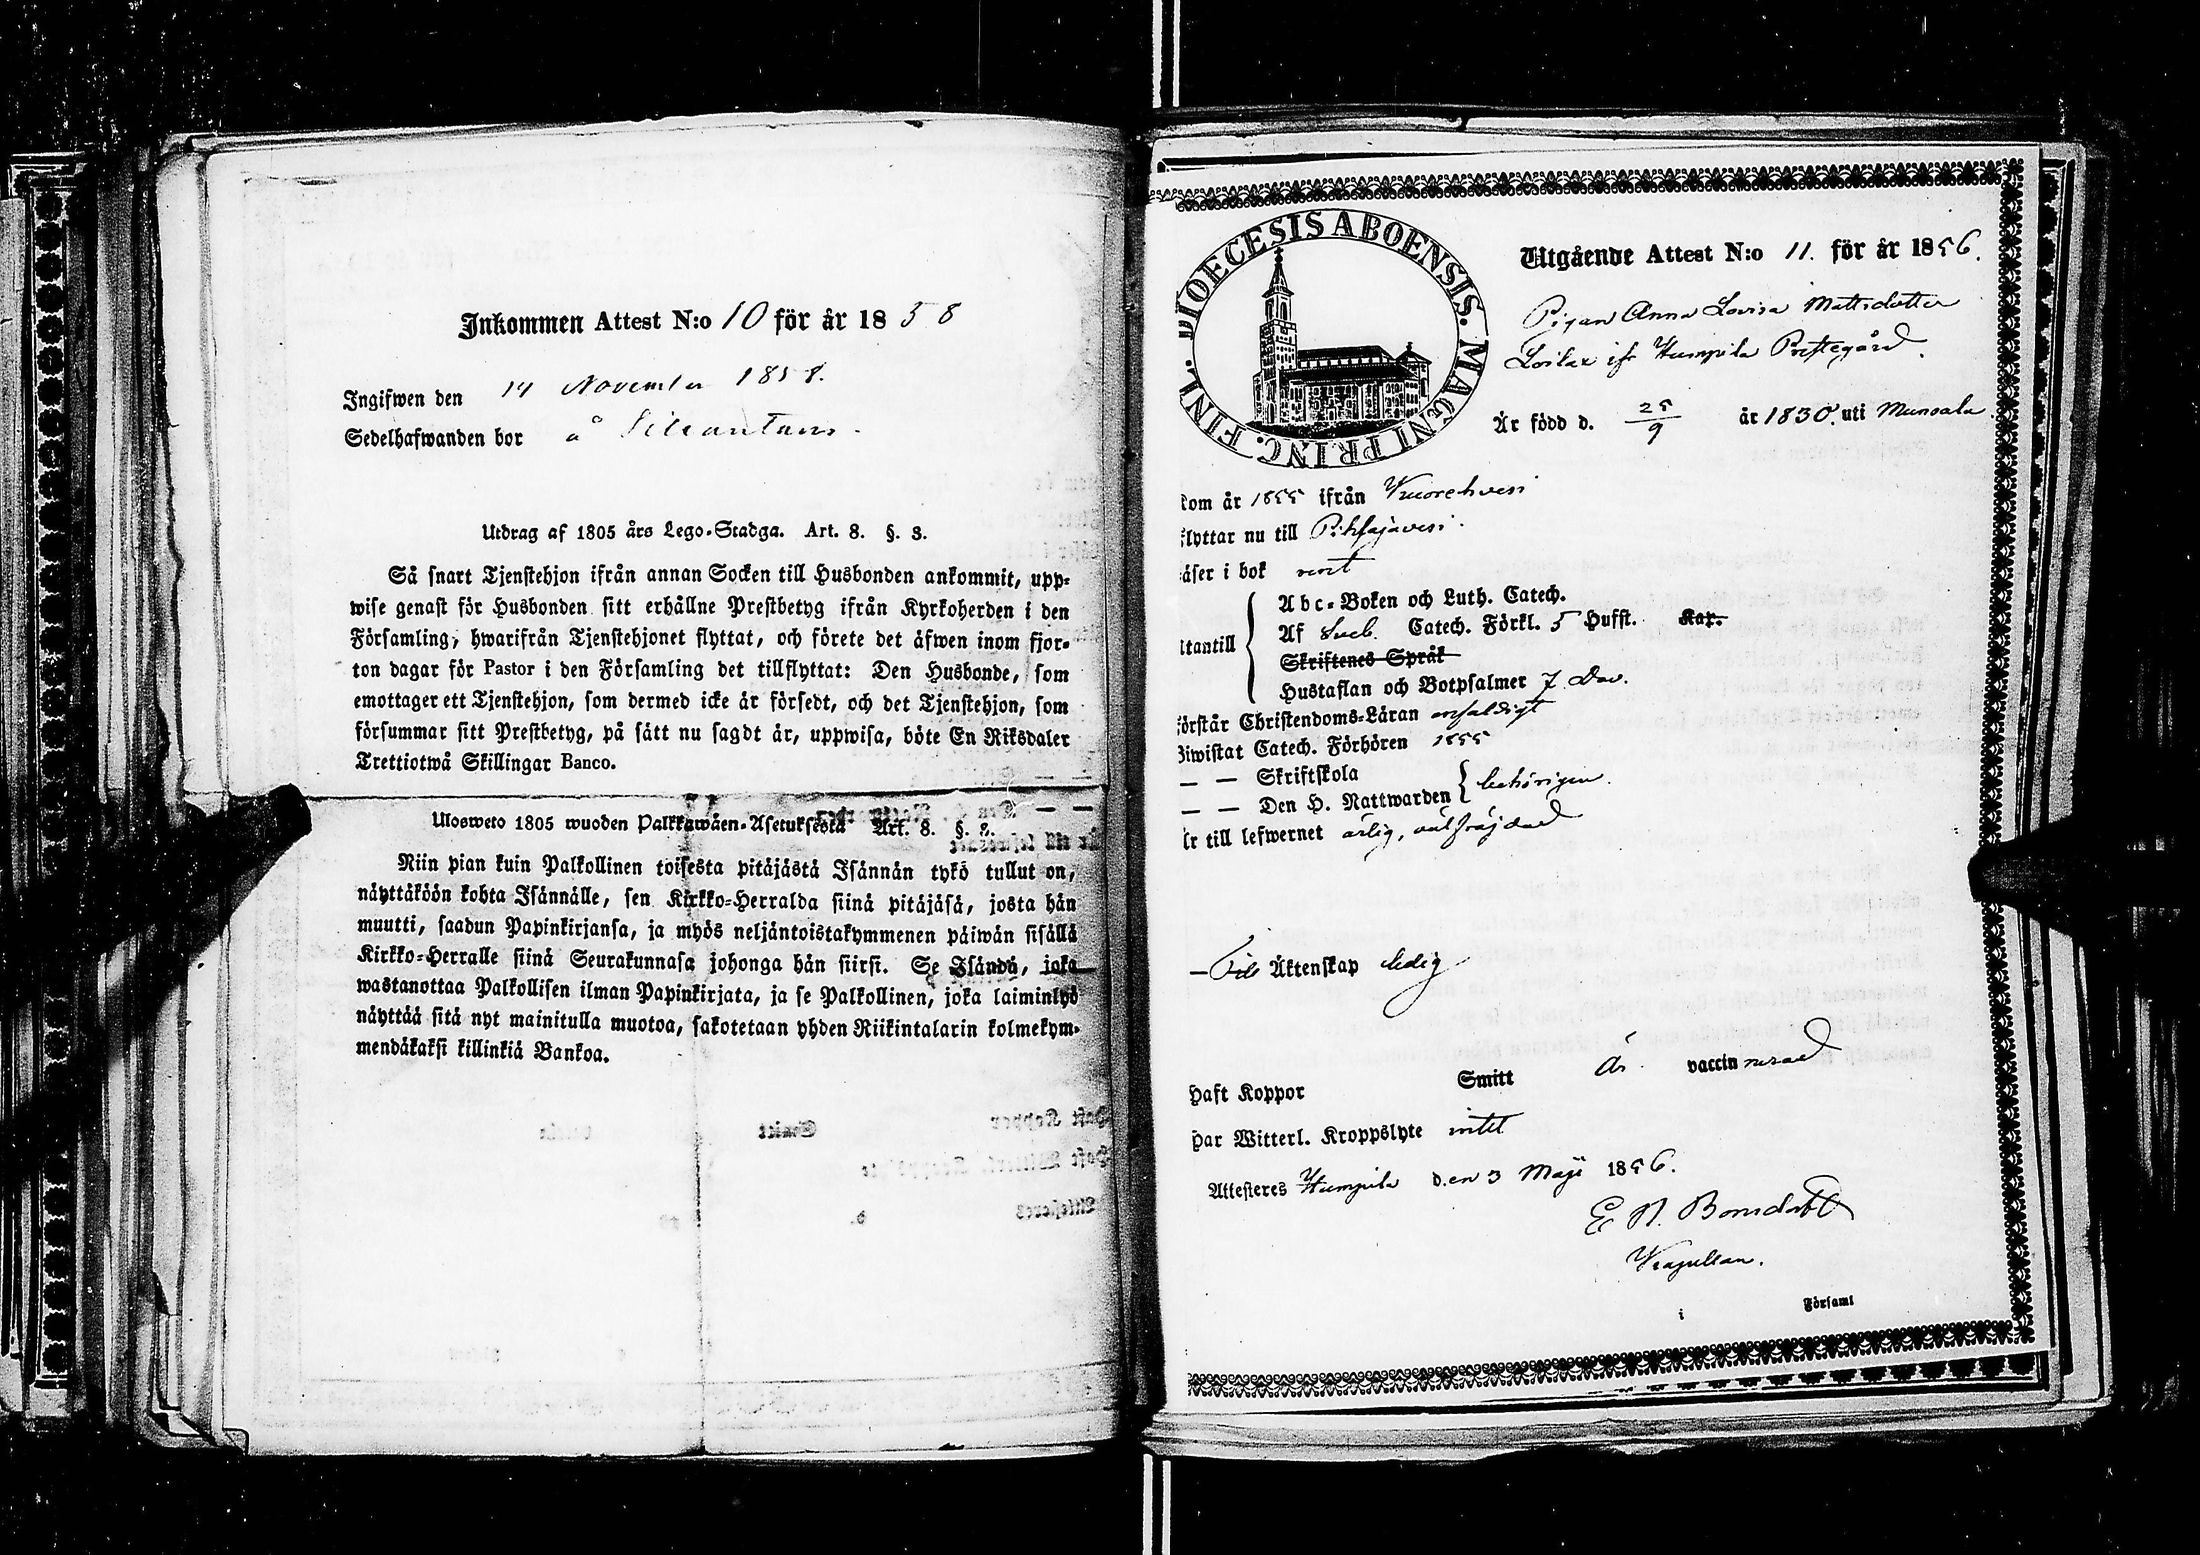 Inkommen Attest N:o 10 för år 1858
Ingifwen den 14 November 1858.
Sedelhafwanden bor å
Utdrag af 1805 års Lego-Stadga. Art. 8. §. 3.
Så snart Tjenstehjon ifrån annan Socken till Husbonden ankommit, upp-
wise genast för Husbonden sitt erhållne Prestbetyg ifrån Kyrkoherden i den
Församling, hwarifrån Tjenstehjonet flyttat, och förete det äfwen inom fjor-
ton dagar för Pastor i den Församling det tillflyttat: Den Husbonde, som
emottager ett Tjenstehjon, som dermed icke är försedt, och det Tjenstehjon, som
försummar sitt Prestbetyg, på sätt nu sagdt är, uppwisa, böte En Riksdaler
Trettiotwå Skillingar Banco.
Ulosweto 1805 wuoden Palkkawäen-Asetuksesta Art. 8. §. 3.
Niin pian kuin Palkollinen toisesta pitäjästä Isännän tykö tullut on,
näyttäköön kohta Isännälle, sen Kirkko-Herralda siinä pitäjäsä, josta hän
muutti, saadun Papinkirjansa, ja myös neljäntoistakymmenen päiwän sisällä
Kirkko-Herralle siinä Seurakunnasa johonga hän siirsi. Se Isändä, joka
wastanottaa Palkollisen ilman Papinkirjata, ja se Palkollinen, joka laiminlyö
näyttää sitä nyt mainitulla muotoa, sakotetaan yhden Riikintalarin kolmekym-
mendäkaksi killinkiä Bankoa.
DIOECESIS ABOENSIS. MAGNI PRINC. FINL.
Utgående Attest N:o 11. för år 1856.
Pigan Anna Lovisa Mattsdotter
Loilax ifr Humpila Prestegård.
Är född d. 25/9 år 1830. uti Munsala
kom år 1855 ifrån Kuorehvesi
flyttar nu till Pihlajavesi.
äser i bok rent
Abc-Boken och Luth. Catech.
ltantill Af Sveb. Catech. Förkl. 5 Hufst. Kap.
Skriftenes Språk
Hustaflan och Botpsalmer 7. Dav.
örstår Christendoms-Läran enfaldigt
Biwistat Catech. Förhören 1855
— — Skriftskola
— — Den H. Nattwarden behörigen.
är till lefwernet ärlig, välfräjdad
— Till Äktenskap ledig
Haft Koppor Smitt Är vaccinerad
Har Witterl. Kroppslyte intet
Attesteres Humpila den 3 Maji 1856.
E. N.
V
i Församl